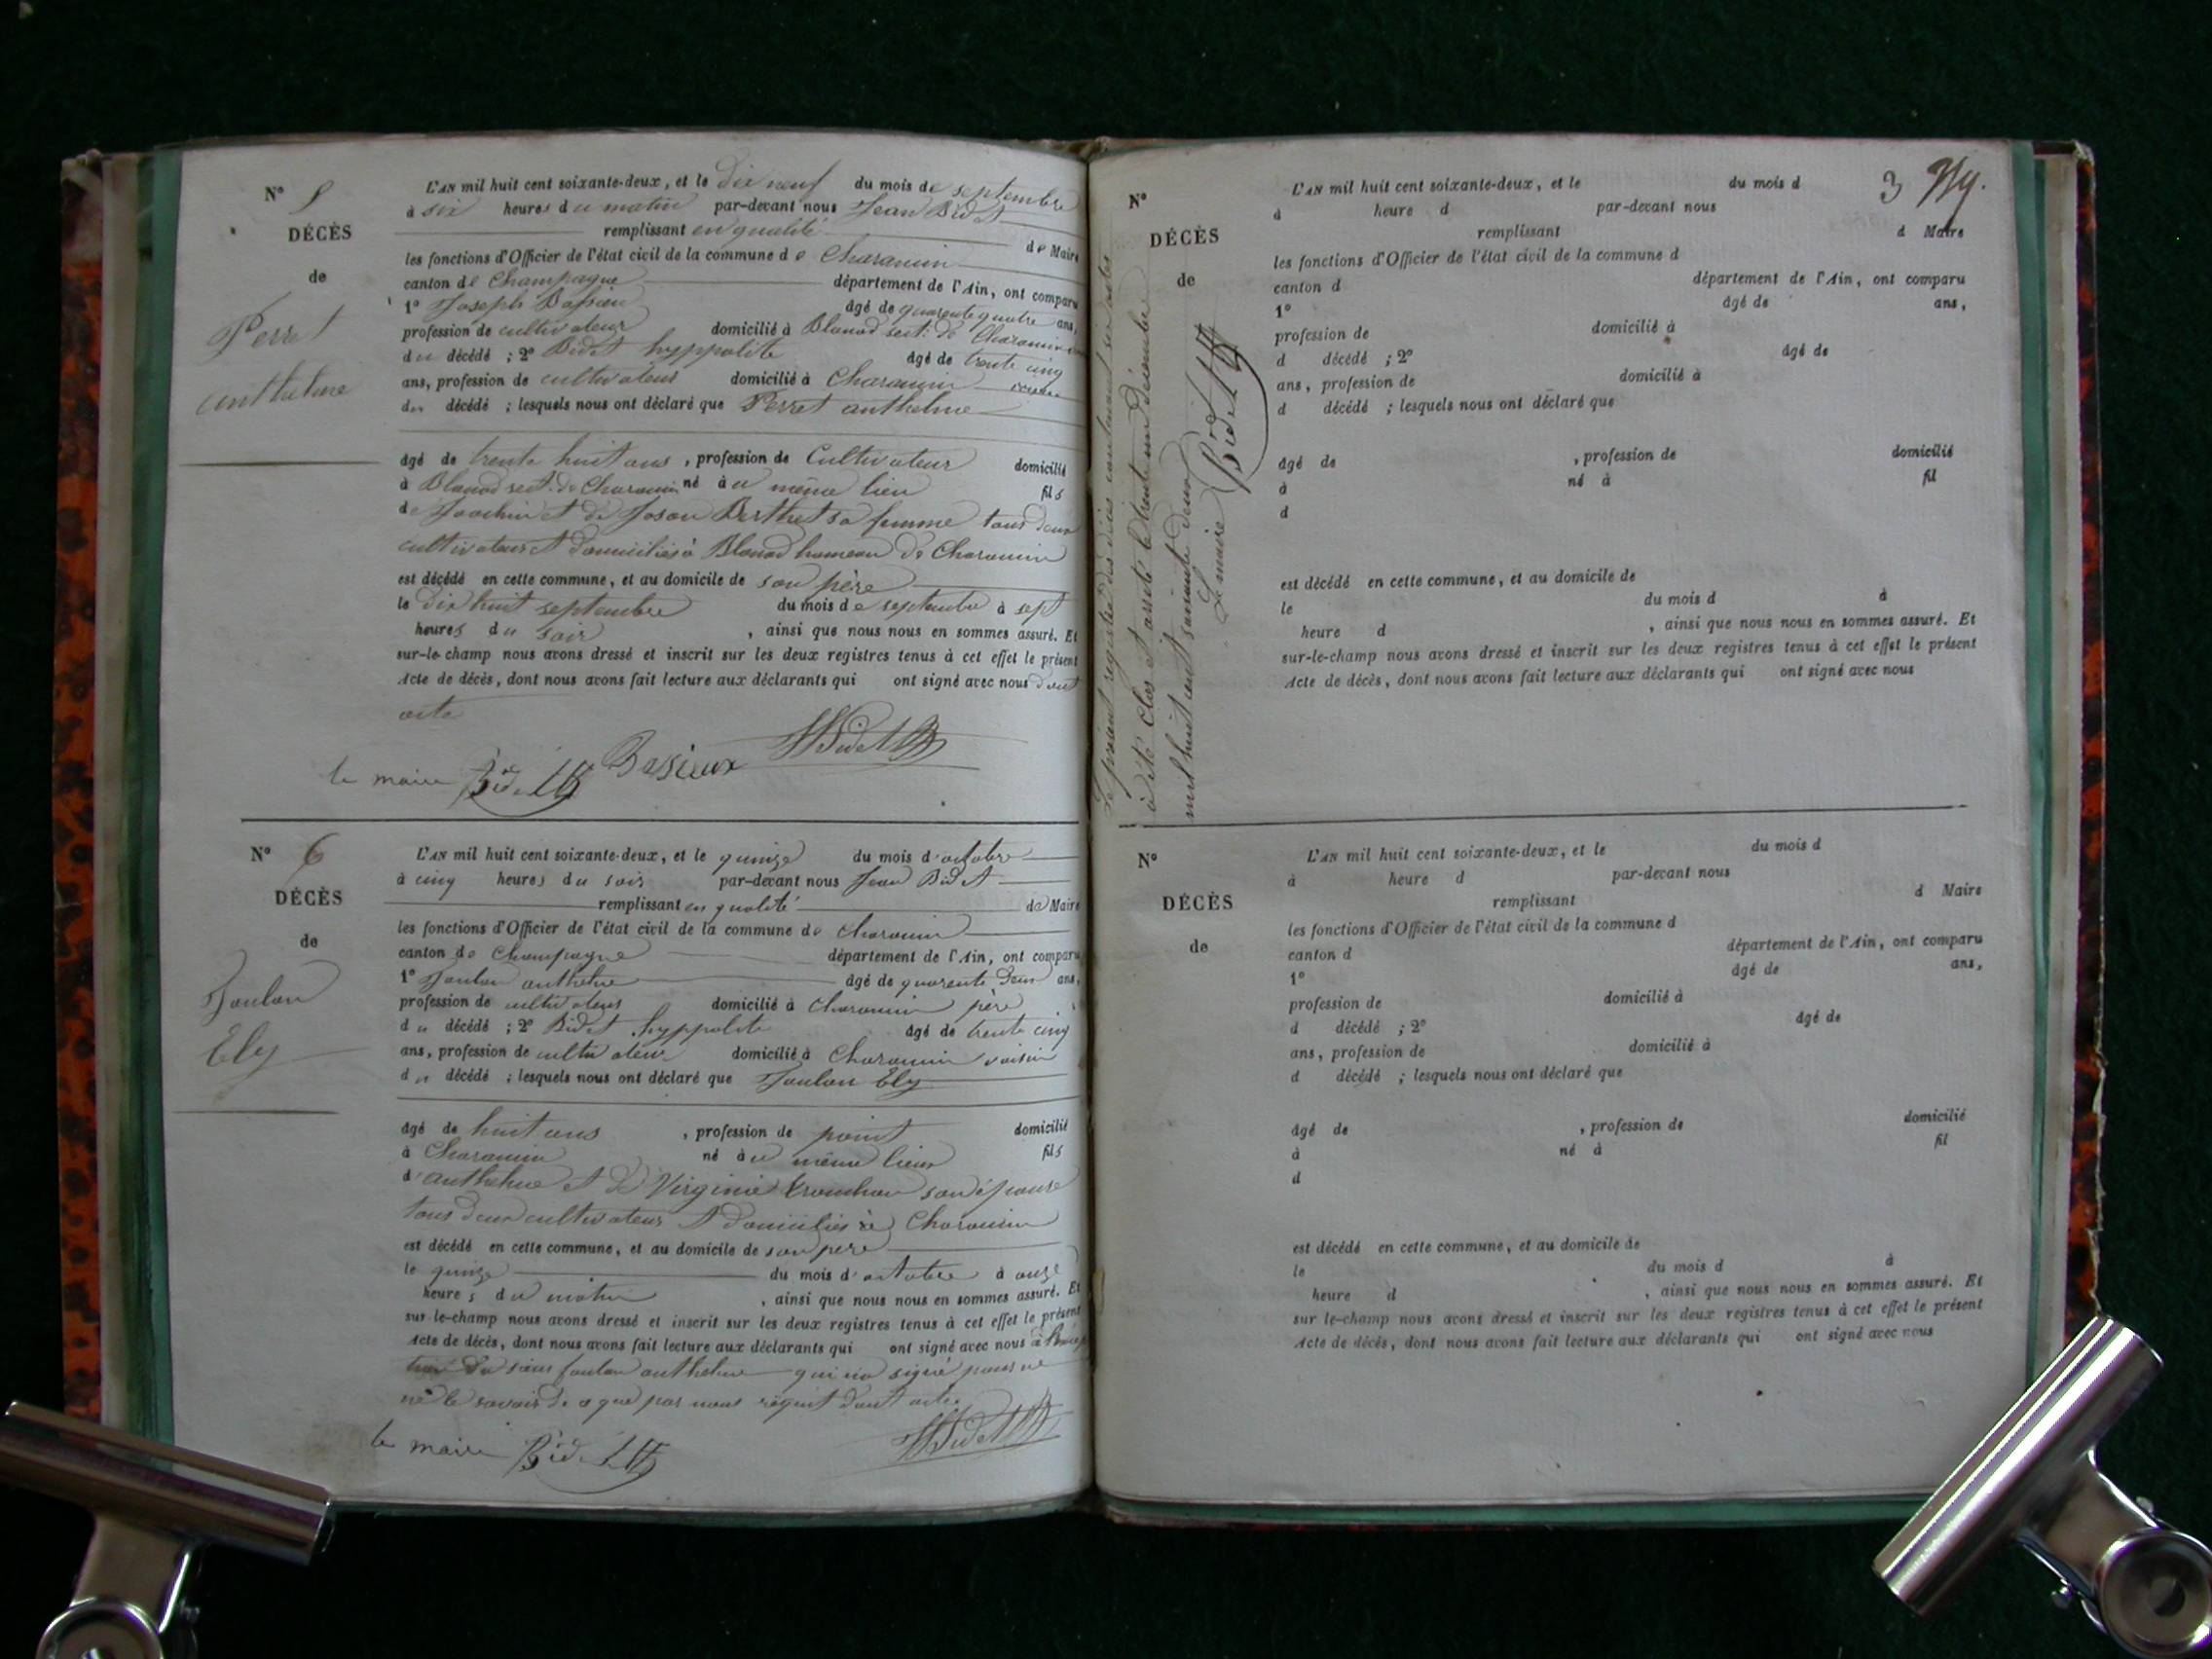 N° 5
DÉCÈS
de
Perret
anthelme
L'AN mil huit cent soixante-deux, et le dix neuf du mois de septembre
à six heures du matin par-devant nous Jean Bidet
remplissant en qualité de Maire
les fonctions d'Officier de l'état civil de la commune de Charancin
canton de Champagne département de l'Ain, ont comparu
1° Joseph âgé de quarente quatre ans,
profession de cultivateur domicilié à Blanod sect. de Charancin
du décédé ; 2° Bidet hyppolite âgé de trente cinq
ans, profession de cultivateur domicilié à Charancin
du décédé ; lesquels nous ont déclaré que Perret anthelme
âgé de trente huit ans, profession de Cultivateur domicilié
à Blanod sect. de Charancin né au même lieu fils
de Joachim et de Berthet sa femme tous deux
cultivateurs et domiciliés à Blanod hameau de Charancin
est décédé en cette commune, et au domicile de son père
le dix huit septembre du mois de septembre à sept
heures du soir, ainsi que nous nous en sommes assuré. Et
sur-le-champ nous avons dressé et inscrit sur les deux registres tenus à cet effet le présent
Acte de décès, dont nous avons fait lecture aux déclarants qui ont signé avec nous dont
acte
le maire Bidet Bassieux H Bidet
N° 6
DÉCÈS
de
Joulon
Ely
L'AN mil huit cent soixante-deux, et le quinze du mois d'octobre
à cinq heures du soir par-devant nous Jean Bidet
remplissant en qualité de Maire
les fonctions d'Officier de l'état civil de la commune de Charancin
canton de Champagne département de l'Ain, ont comparu
1° Joulon anthelme âgé de quarente deux ans,
profession de cultivateur domicilié à Charancin père
du décédé ; 2° Bidet hyppolite âgé de trente cinq
ans, profession de cultivateur domicilié à Charancin voisin
du décédé ; lesquels nous ont déclaré que Joulon Ely
âgé de huit ans, profession de point domicilié
à Charancin né au même lieu fils
d'anthelme et de Virginie son épouse
tous deux cultivateurs et domiciliés à Charancin
est décédé en cette commune, et au domicile de son père
le quinze du mois d'octobre à onze
heures du matin, ainsi que nous nous en sommes assuré. Et
sur-le-champ nous avons dressé et inscrit sur les deux registres tenus à cet effet le présent
Acte de décès, dont nous avons fait lecture aux déclarants qui ont signé avec nous
du sieur Joulon anthelme qui n'a signé pour ne
le savoir de a que par nous requit dont acte.
le maire Bidet H Bidet
Le présent registre des décès contenant six actes
a été clos et arrêté le trente un décembre
mil huit cent soixante deux
Le maire Bidet
3
N°
DÉCÈS
de
L'AN mil huit cent soixante-deux, et le du mois d
à heure d par-devant nous
remplissant d Maire
les fonctions d'Officier de l'état civil de la commune d
canton d département de l'Ain, ont comparu
1° âgé de ans,
profession de domicilié à
d décédé ; 2° âgé de
ans, profession de domicilié à
d décédé ; lesquels nous ont déclaré que
âgé de , profession de domicilié
à né à fil
d
est décédé en cette commune, et au domicile de
le du mois d à
heure d , ainsi que nous nous en sommes assuré. Et
sur-le-champ nous avons dressé et inscrit sur les deux registres tenus à cet effet le présent
Acte de décès, dont nous avons fait lecture aux déclarants qui ont signé avec nous
N°
DÉCÈS
de
L'AN mil huit cent soixante-deux, et le du mois d
à heure d par-devant nous
remplissant d Maire
les fonctions d'Officier de l'état civil de la commune d
canton d département de l'Ain, ont comparu
1° âgé de ans,
profession de domicilié à
d décédé ; 2° âgé de
ans, profession de domicilié à
d décédé ; lesquels nous ont déclaré que
âgé de , profession de domicilié
à né à fil
d
est décédé en cette commune, et au domicile de
le du mois d à
heure d , ainsi que nous nous en sommes assuré. Et
sur-le-champ nous avons dressé et inscrit sur les deux registres tenus à cet effet le présent
Acte de décès, dont nous avons fait lecture aux déclarants qui ont signé avec nous